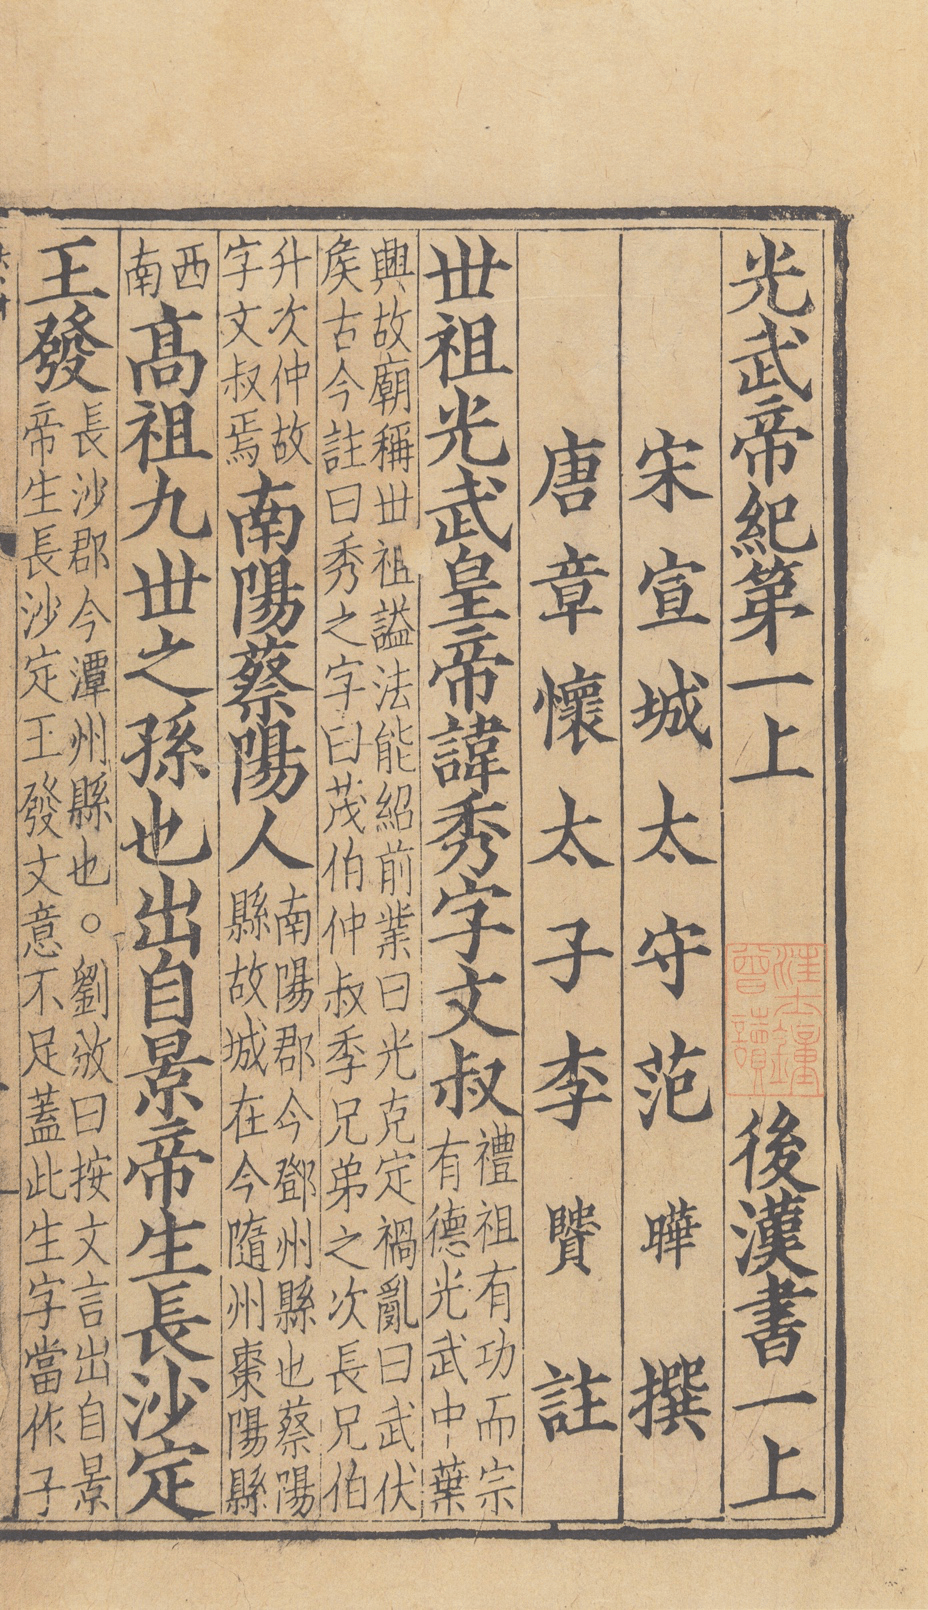 光武帝紀第一上 後漢書一上
汪士鐘
曾讀
宋宣城太守范曄撰
唐章懷太子李賢註
世祖光武皇帝諱秀字文叔
禮祖有功而宗
有德光武中葉
興故廟稱世祖謚法能紹前業曰光克定禍亂曰武伏
侯古今註曰秀之字曰茂伯仲叔季兄弟之次長兄伯
升次仲故
字文叔焉
南陽蔡陽人
南陽郡今鄧州縣也蔡陽
縣故城在今隨州棗陽縣
西
南
高祖九世之孫也出自景帝生長沙定
王發
長沙郡今潭州縣也。劉攽曰按文言出自景
帝生長沙定王發文意不足蓋此生字當作子